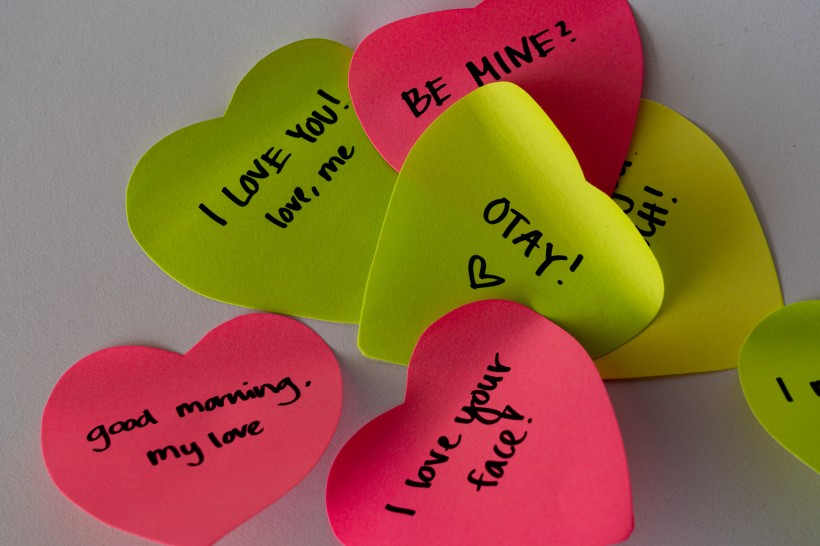 BE MINE?
I LOVE YOU!
love, me
OTAY!
good morning,
my love
I love your
face!
I